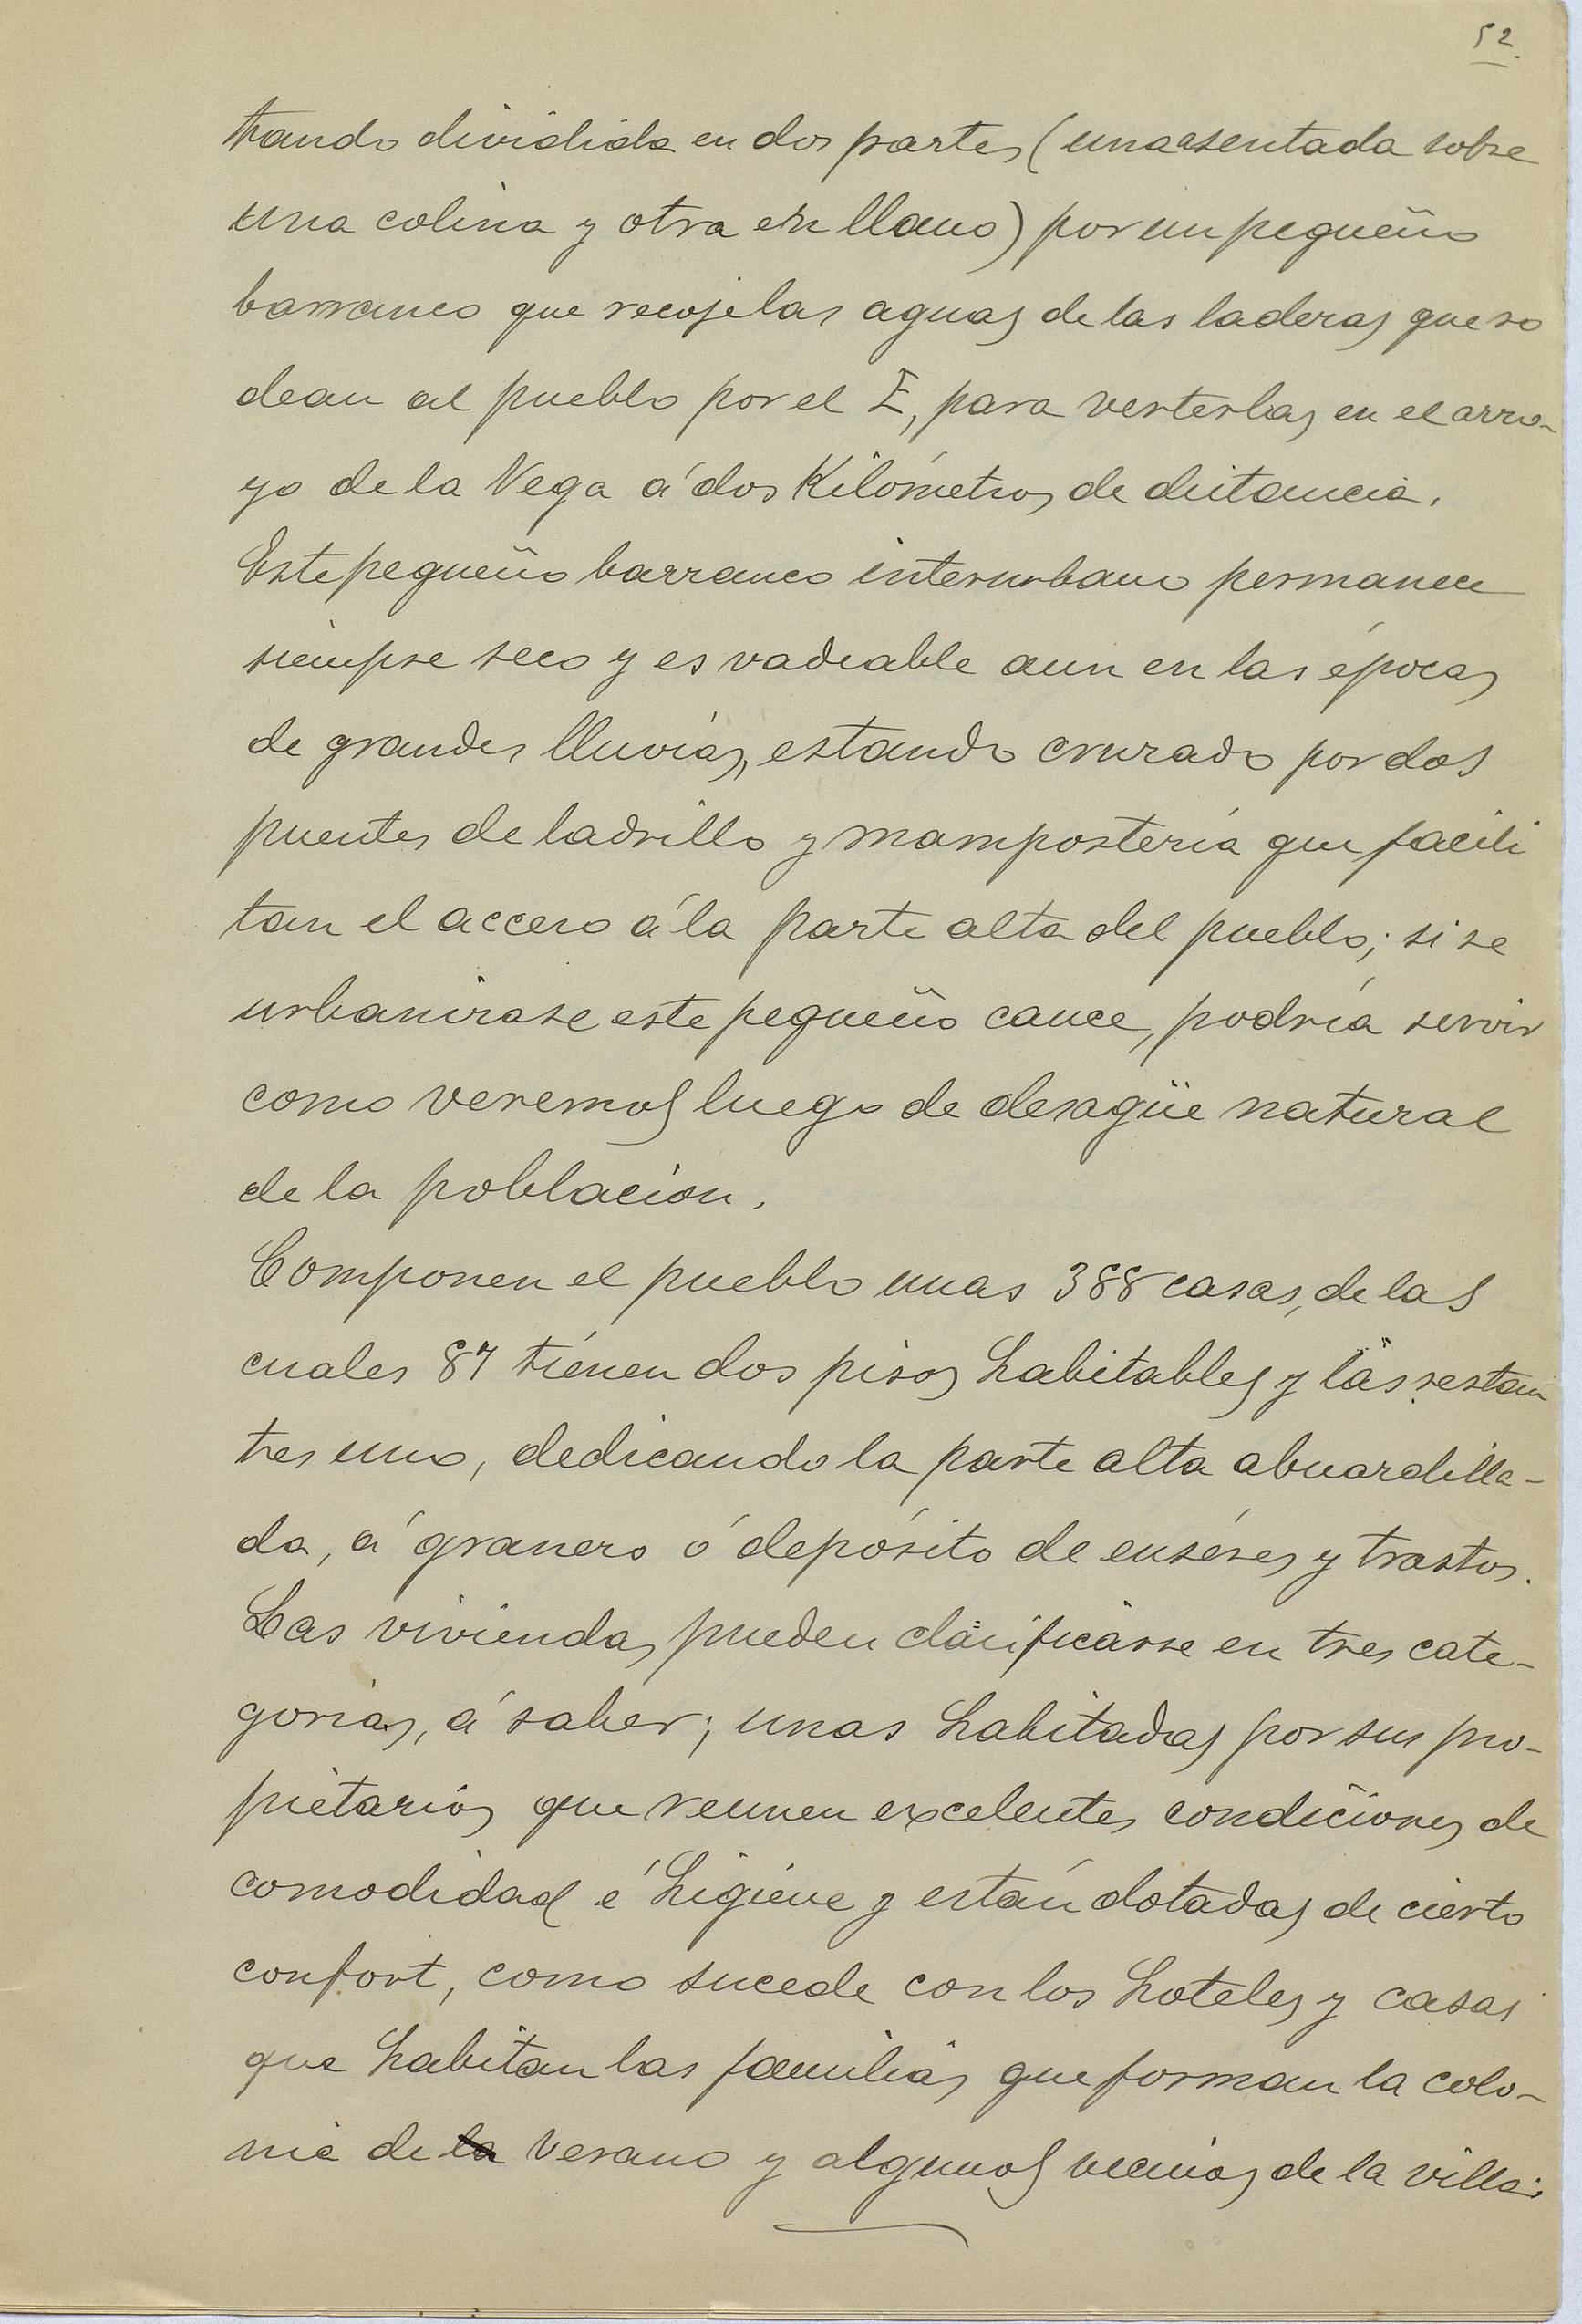 52.
trando dividida en dos partes (una asentada sobre
una colina y otra en llano) por un pequeño
barranco que recoje las aguas de las laderas que ro
dean al pueblo por el E, para verterlas en el arro-
yo de la Vega á dos Kilómetros de distancia.
Este pequeño barranco interurbano permanece
siempre seco y es vadeable aun en las épocas
de grandes lluvias, estando cruzado por dos
puentes de ladrillo y mampostería que facili
tan el acceso á la parte alta del pueblo; si se
urbanizase este pequeño cauce, podría servir
como veremos luego de desagüe natural
de la población.
Componen el pueblo unas 388 casas, de las
cuales 87 tienen dos pisos habitables y las restan
tes uno, dedicando la parte alta abuardilla-
da, á granero ó depósito de enséres y trastos.
Las viviendas pueden clasificarse en tres cate-
gorías, á saber; unas habitadas por sus pro-
pietarios que reunen excelentes condiciones de
comodidad é higiéne y están dotadas de cierto
confort, como sucede con los hoteles y casas
que habitan las familias que forman la colo-
nia de la verano y algunos vecinos de la villa;